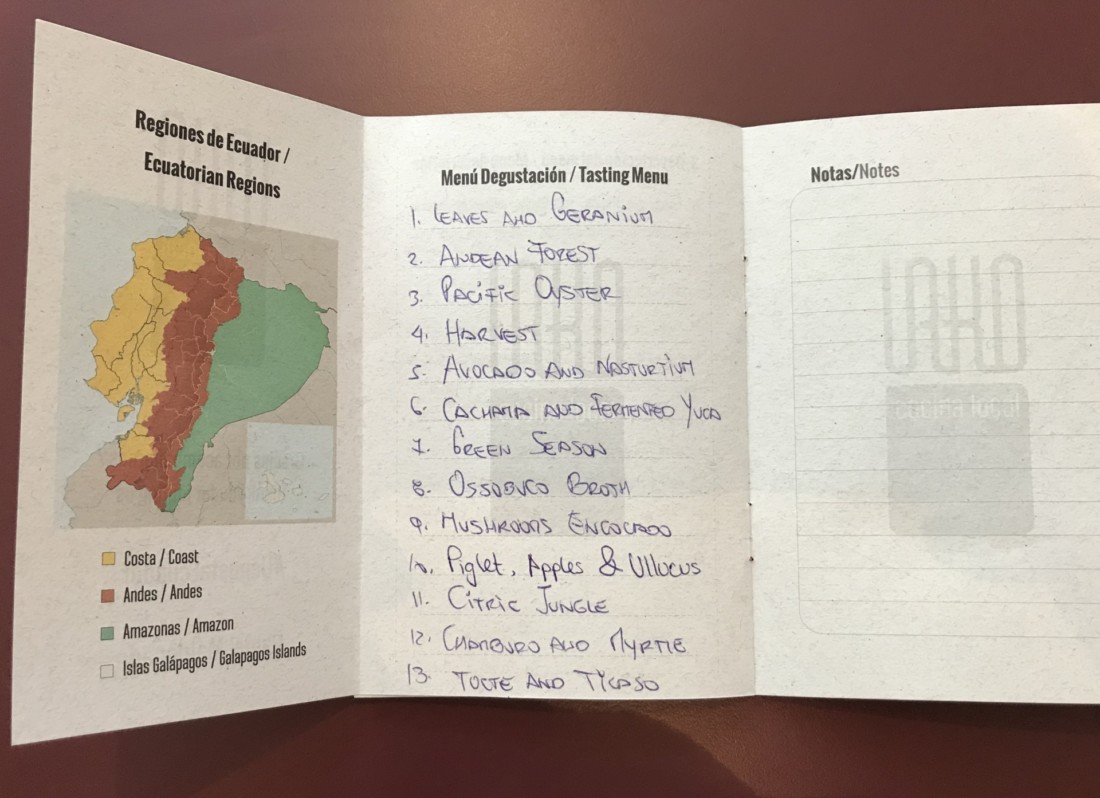 Regiones de Ecuador /
Ecuatorian Regions
Costa / Coast
Andes / Andes
Amazonas / Amazon
Islas Galápagos / Galapagos Islands
Menú Degustación / Tasting Menu
1. LEAVES AND GERANIUM
2. ANDEAN FOREST
3. PACIFIC OYSTER
4. HARVEST
5. AVOCADO AND NASTURTIUM
6. CACHAMA AND FERMENTED YUCA
7. GREEN SEASON
8. OSSOBUCO BROTH
9. MUSHROOMS ENCOCADO
10. Piglet, Apples & Ullucus
11. CITRIC JUNGLE
12. CHAMBURO AND MYRTLE
13. TOCTE AND TICASO
Notas/Notes